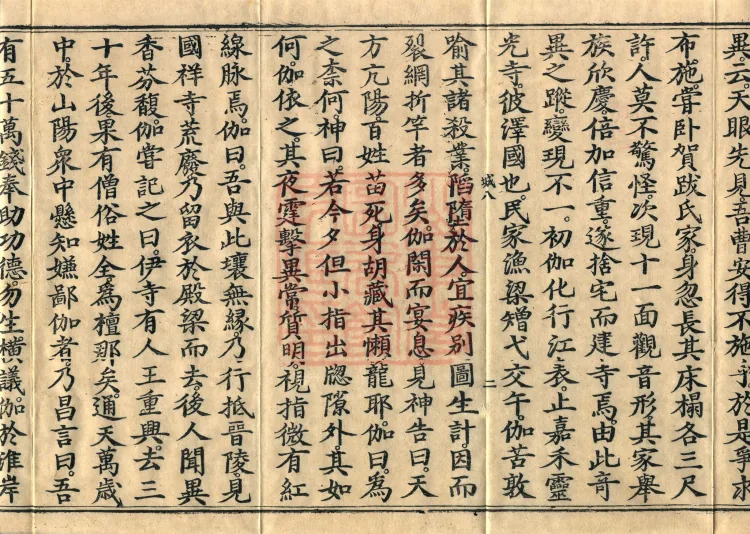 異。云。天眼先見。吾曹安得不施乎。於是爭求
布施。嘗卧賀跋氏家。身忽長其床榻各三尺
許。人莫不驚怪。次現十一面觀音形。其家舉
族欣慶倍加信重。遂捨宅而建寺焉。由此奇
異之蹤變現不一。初伽化行江表。止嘉禾靈
光寺。彼澤國也。民家漁梁矰弋交午。伽苦敦
喻其諸殺業。陷墮於人。宜疾別圖生計。因而
裂網折竿者多矣。伽閑而宴息見神告曰。天
方亢陽。百姓苗死身胡藏其懶龍耶。伽曰。為
之柰何。神曰。若今夕但小指出牕隙外其如
何。伽依之。其夜霆擊異常質明。視指微有紅
線脉焉。伽曰。吾與此壤無緣。乃行抵晉陵見
國祥寺荒廢。乃留衣於殿梁而去。後人聞異
香芬馥。伽嘗記之曰。伊寺有人王重興。去三
十年後。果有僧俗姓全為檀那矣。通天萬歲
中。於山陽眾中懸知嫌鄙伽者。乃昌言曰。吾
有五十萬錢奉助功德。勿生橫議。伽於淮岸
二